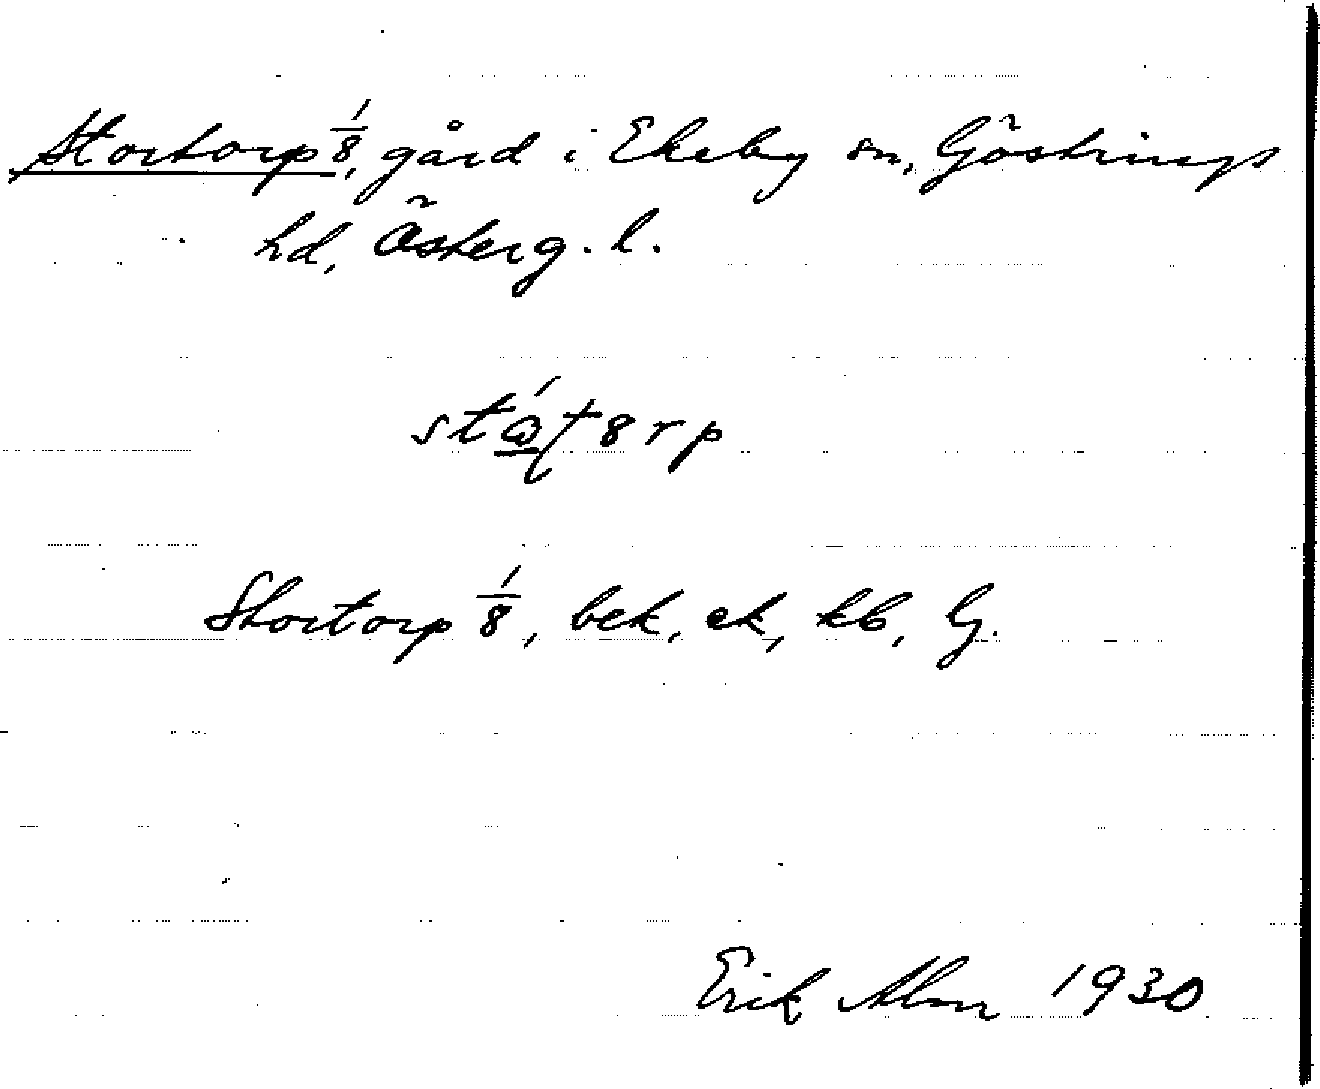 Stortorp 1/8, gård i Ekeby sn, Göstrings
hd, Österg. l.
Stortorp 1/8, bek, ek, kb, G.
Erik Alm 1930